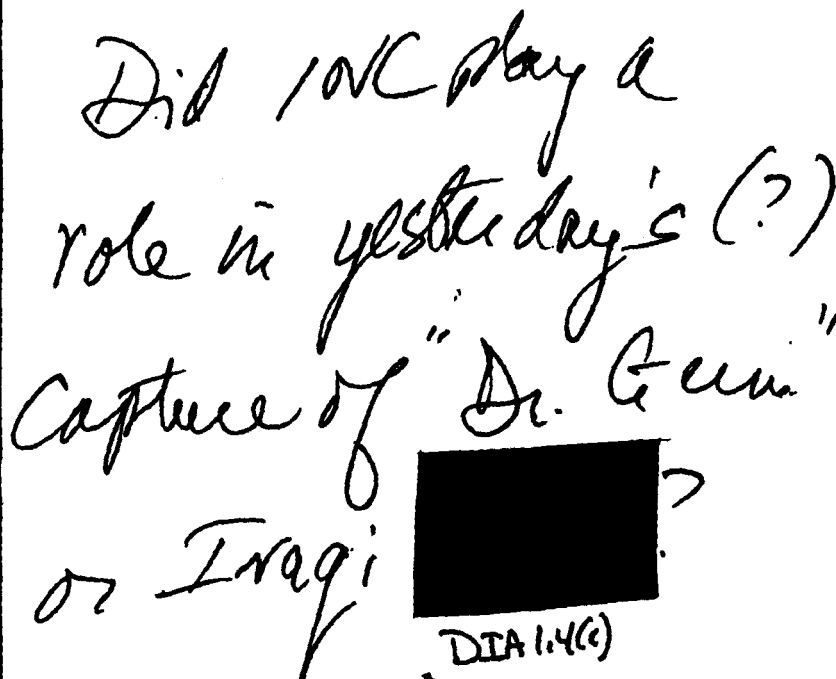 Did INC play a
role in yesterday's (?)
Capture of "Dr. Germ"
or Iraqi ?
DIA 1.4(c)